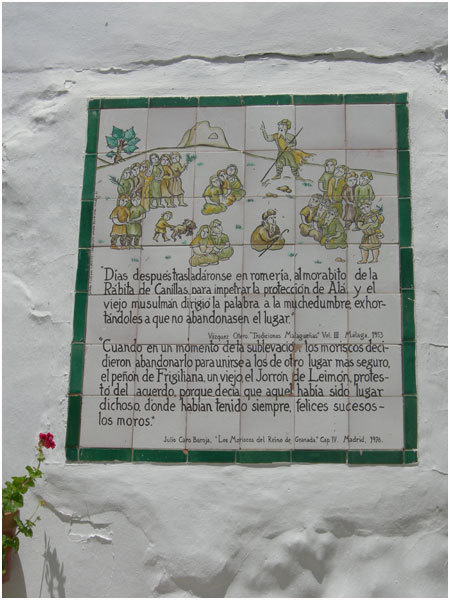 "Días después, trasladáronse en romería, al morabito de la
Rábita de Canillas, para impetrar la protección de Alá y el
viejo musulmán dirigio la palabra a la muchedumbre, exhor-
tándoles a que no abandonasen el lugar."
Vázquez Otero. "Tradiciones Malagueñas" Vol. III Málaga, 1953
"Cuando en un momento de la sublevación los moriscos deci-
dieron abandonarlo para unirse a los de otro lugar más seguro,
el peñón de Frigiliana, un viejo, el Jorrón de Leimón, protes-
tó del acuerdo, porque decía que aquel había sido lugar
dichoso, donde habían tenido siempre, felices sucesos-
los moros."
Julio Caro Baroja, "Los Moriscos del Reino de Granada" Cap IV. Madrid, 1976.